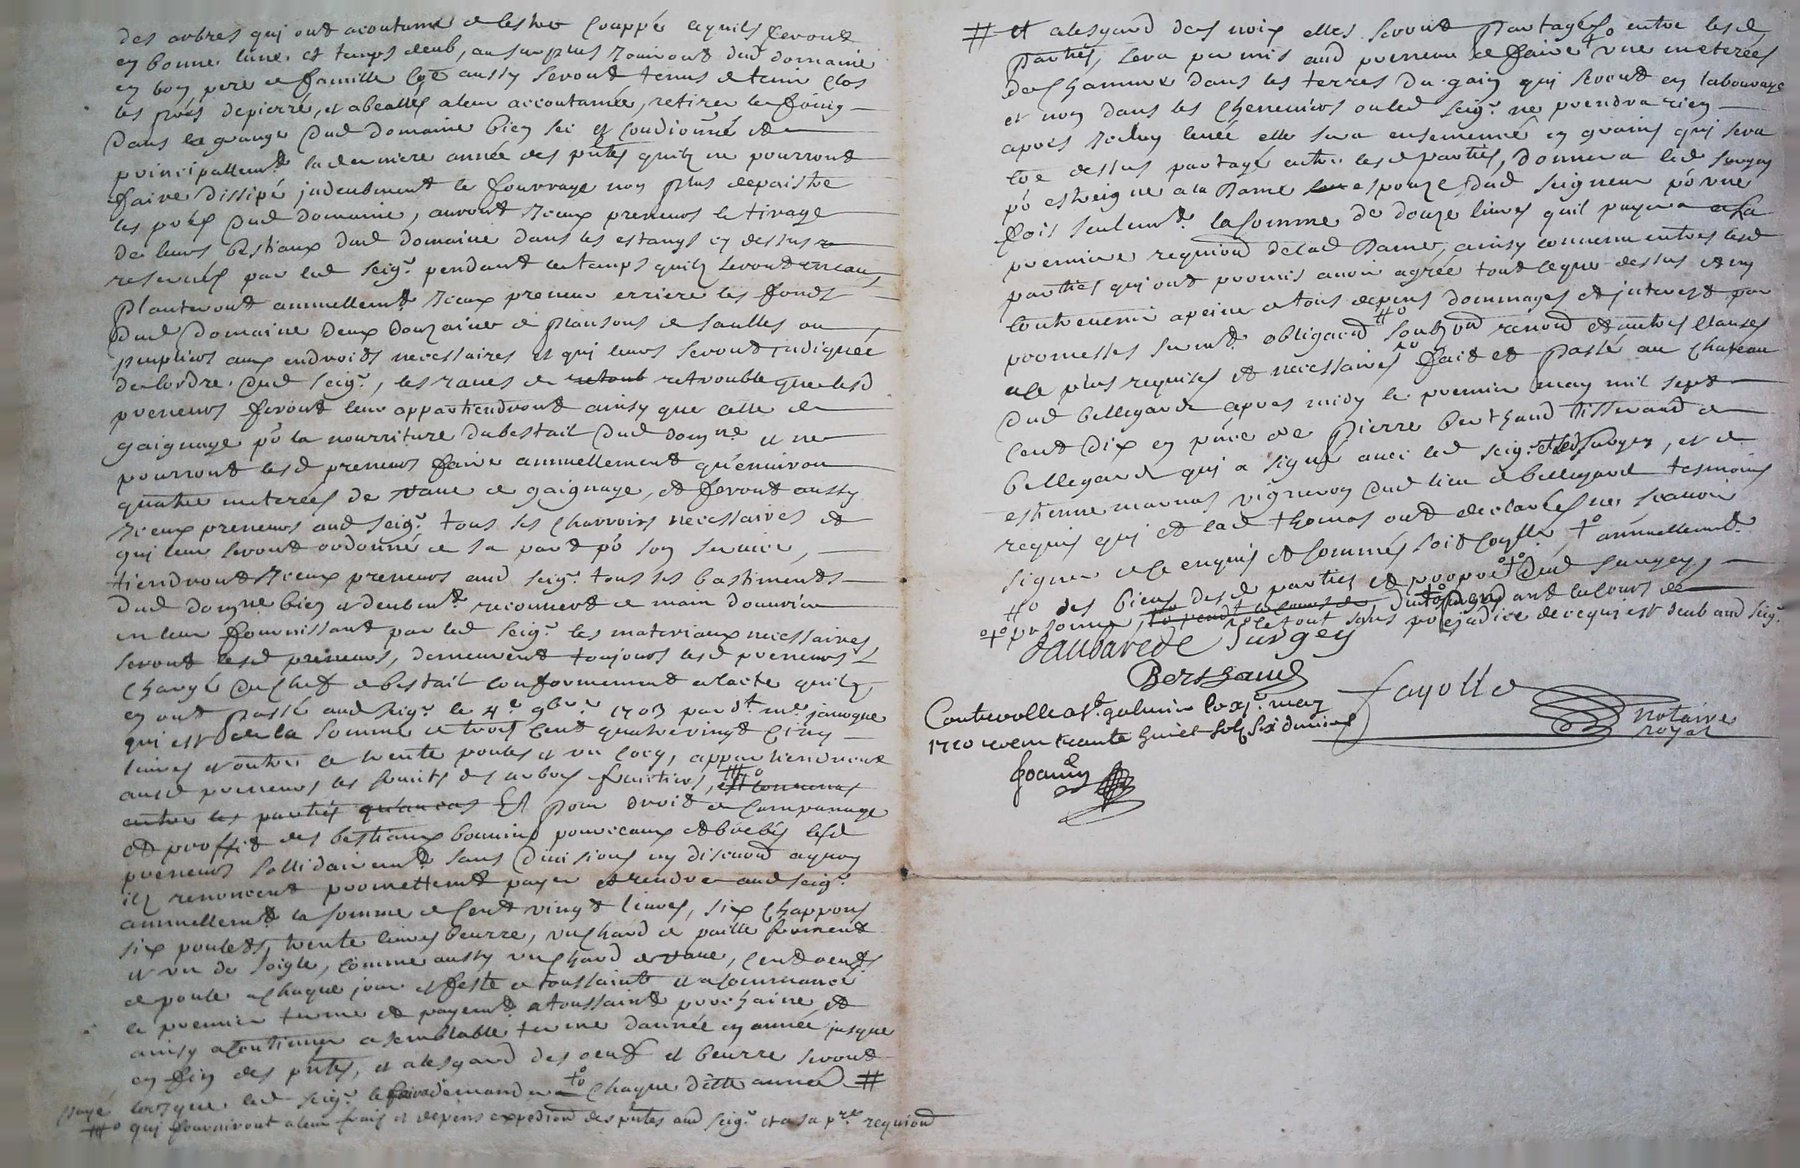 des arbres qui ont acoutumé de lestre couppé aquils feront
en bonne lune et temps deub, au surplus jouiront dud domaine
en bon pere de famille et aussy seront tenus de tenir clos
les prés depierré, et abealles a leur accoutumée, retirer le foing
dans la grange dud domaine bien sec et conditionné et
principallemt la derniere année des pntes quilz ne pourront
faire dissipé induebment le fourrage non plus depaistre
les prés dud domaine, auront yceux preneurs le tirage
de leurs bestiaux dud domaine dans les estangs cy dessus
reservés par led seigr pendant le temps quilz seront en eau,
planteront annuellemt yceux preneur erriere les fonds
dud domaine deux douzaines de plansons de saulles ou
peupliers aux endroits necessaires et qui leurs seront indiquée
de lordre dud seigr, les raves de retrouble que lesd
preneurs feront leur appartiendront ainsy que celle de
gaignage po la nourriture du bestail dud domne et ne
pourront lesd preneurs faire annuellement quenviron
quatre meterées de rave de gaignage, et feront aussy
yceux preneurs aud seigr tous les charrois necessaires et
qui leur seront ordonné de sa part po son service,
tiendront yceux preneurs aud seigr tous les bastiments
dud domne bien et deubemt recouvert de main douvrier
en leur fournissant par led seigr les materiaux necessaires
seront lesd preneurs, demeurent toujours lesd preneurs
chargé du chef de bestail conformement a lacte quilz
en ont passé aud seigr le 4e 9bre 1703 par dt me janoyque
qui est de la somme de trois cent quatre vingt cinq
livres et outre ce trente poules et un cocq, appartiendront
ausd preneurs les fruits des arbres fruitiers, est convenus
entre les parties quiauras Et pour droit de companage
et proffit des bestiaux bouvins pourceaux et brebis lesd
preneurs sollidairemt sans division ny discution aquoy
ilz renoncent promettent payer et rendre aud seigr
annuellemt la somme de cent vingt livres, six chappons
six poulets, trente livres beurre, un chard de paille froment
et un de soigle, comme aussy un chard de rave, cent oeufs
de poule a chaque jour et feste de toussaint et a commancé
le premier terme et payemt a toussaint prochaine et
ainsy a continuer a semblable terme dannée en année jusque
en fin des pntes, et a lesgard des oeufs et beurre seront
payé lorsque led seigr le demandera chaque ditte année #
qui fourniront a leur frais et depens expedition des pntes aud seigr et a sa pre requiond
# et a lesgard des noix elles seront partagés entre lesd
parties, sera permis aud preneur de faire une meterées
de chamure dans les terres du gain qui seront en labourage
et non dans les chenevires ou led seigr ne prendra rien
apres icelluy levée elle sera ensemencé en grains qui sera
cye dessus partagé entre lesd parties, donnera led surgey
po estreigne a la Dame espouze dud seigneur po une
fois seulemt la somme de douze livres quil payera a la
premiere requiond de lad Dame, ainsy convenu entre lesd
parties qui ont promis avoir agrée tout ce que dessus et ny
contrevenir a peine de tous depens dommages et interest par
promesses sermt obligaond soubzond renond et autres clauses
a ce plus requises et necessaires fait et passé au chateau
dud bellegarde apres midy le premier may mil sept
cent dix en pnce de Pierre Berthaud tisserand de
bellegarde qui a signé avec led seigr et led surgey, et de
estienne marnas vigneron dud lieu de bellegarde tesmoins
requis qui et lad thomas ont declarés ne scavoir
signer de ce enquis et sommés soit conlle annuellemt
des biens desd parties et propre dud surgey,
personne, pendant le cours de
le tout sans prejudice de ce qui est deub aud seigr
daubarede Surgey
Berthaud
fayolle
notaire
royal
Controlle a St galmier le xie may
1710 receu trente huict solz six deniers